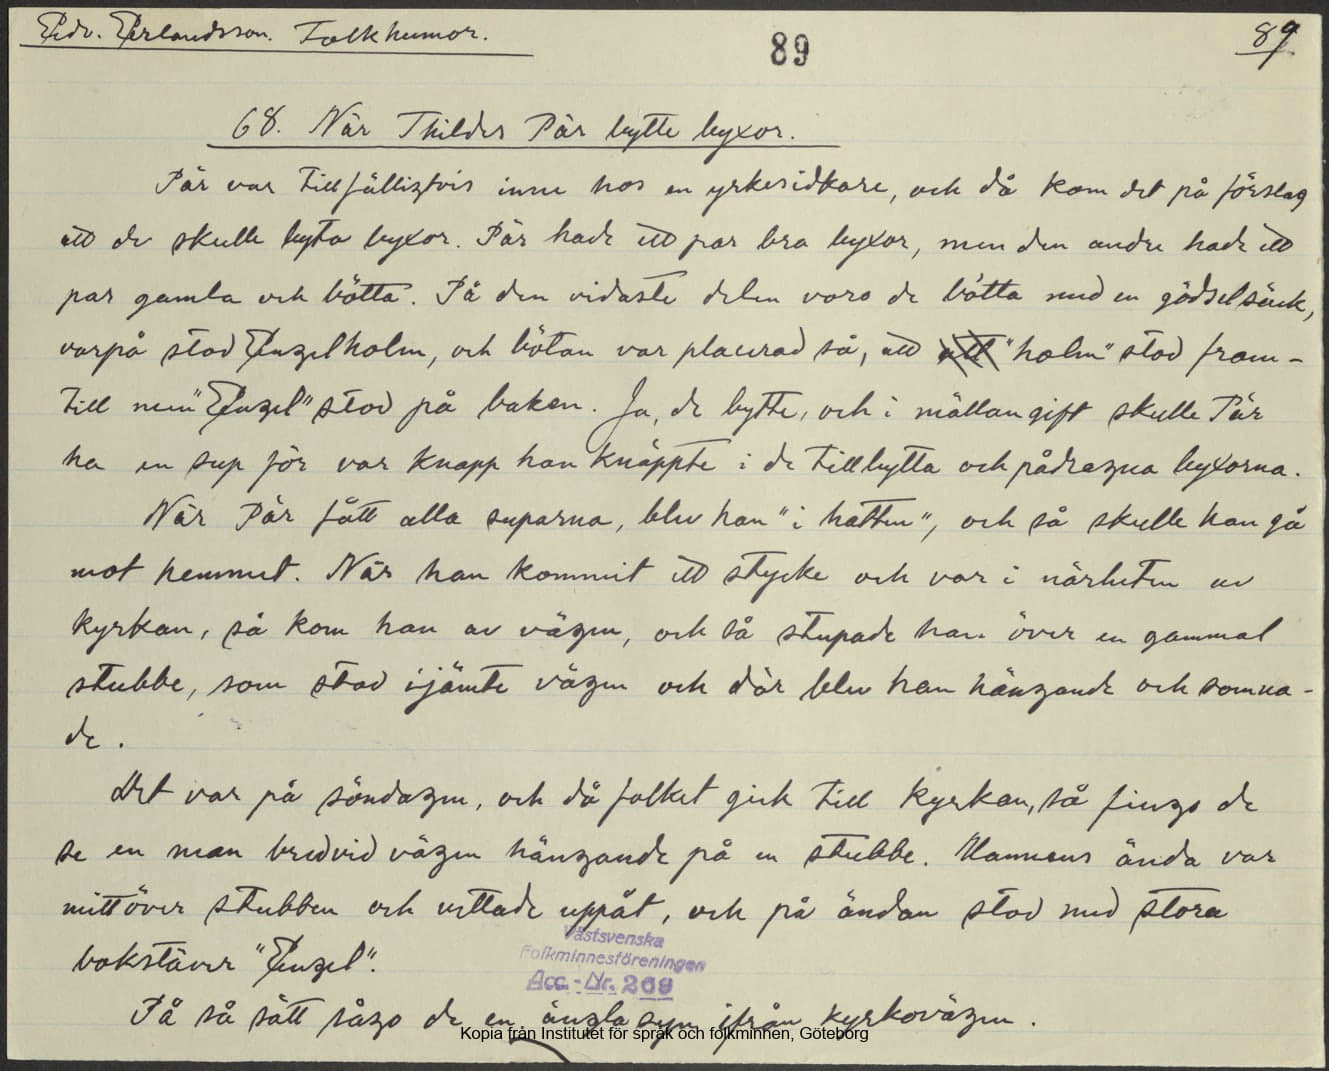 Edv. Erlandsson. Folkhumor.
89
89
68. När Thildes Pär bytte byxor.
Pär var tillfälligtvis inne hos en yrkesidkare, och då kom det på förslag
att de skulle byta byxor. Pär hade ett par bra byxor, men den andre hade ett
par gamla och bötta. På den vidaste delen voro de bötta med en gödselsäck,
varpå stod Engelholm, och bötan var placerad så, att "holm" stod fram-
till men "Engel" stod på baken. Ja, de bytte, och i mällangift skulle Pär
ha en sup för var knapp han knäppte i de tillbytta och pådragna byxorna.
När Pär fått alla suparna, blev han "i hatten", och så skulle han gå
mot hemmet. När han kommit ett stycke och var i närheten av
kyrkan, så kom han av vägen, och så stupade han över en gammal
stubbe, som stod ijämte vägen och där blev han hängande och somna-
de.
Det var på söndagen, och då folket gick till kyrkan, så fingo de
se en man bredvid vägen hängande på en stubbe. Mannens ända var
mittöver stubben och vettade uppåt, och på ändan stod med stora
bokstäver "Engel".
Västsvenska
Folkminnesföreningen
Acc.-Nr. 269
På så sätt sågo de en änglasyn ifrån kyrkovägen.
Kopia från Institutet för språk och folkminnen, Göteborg